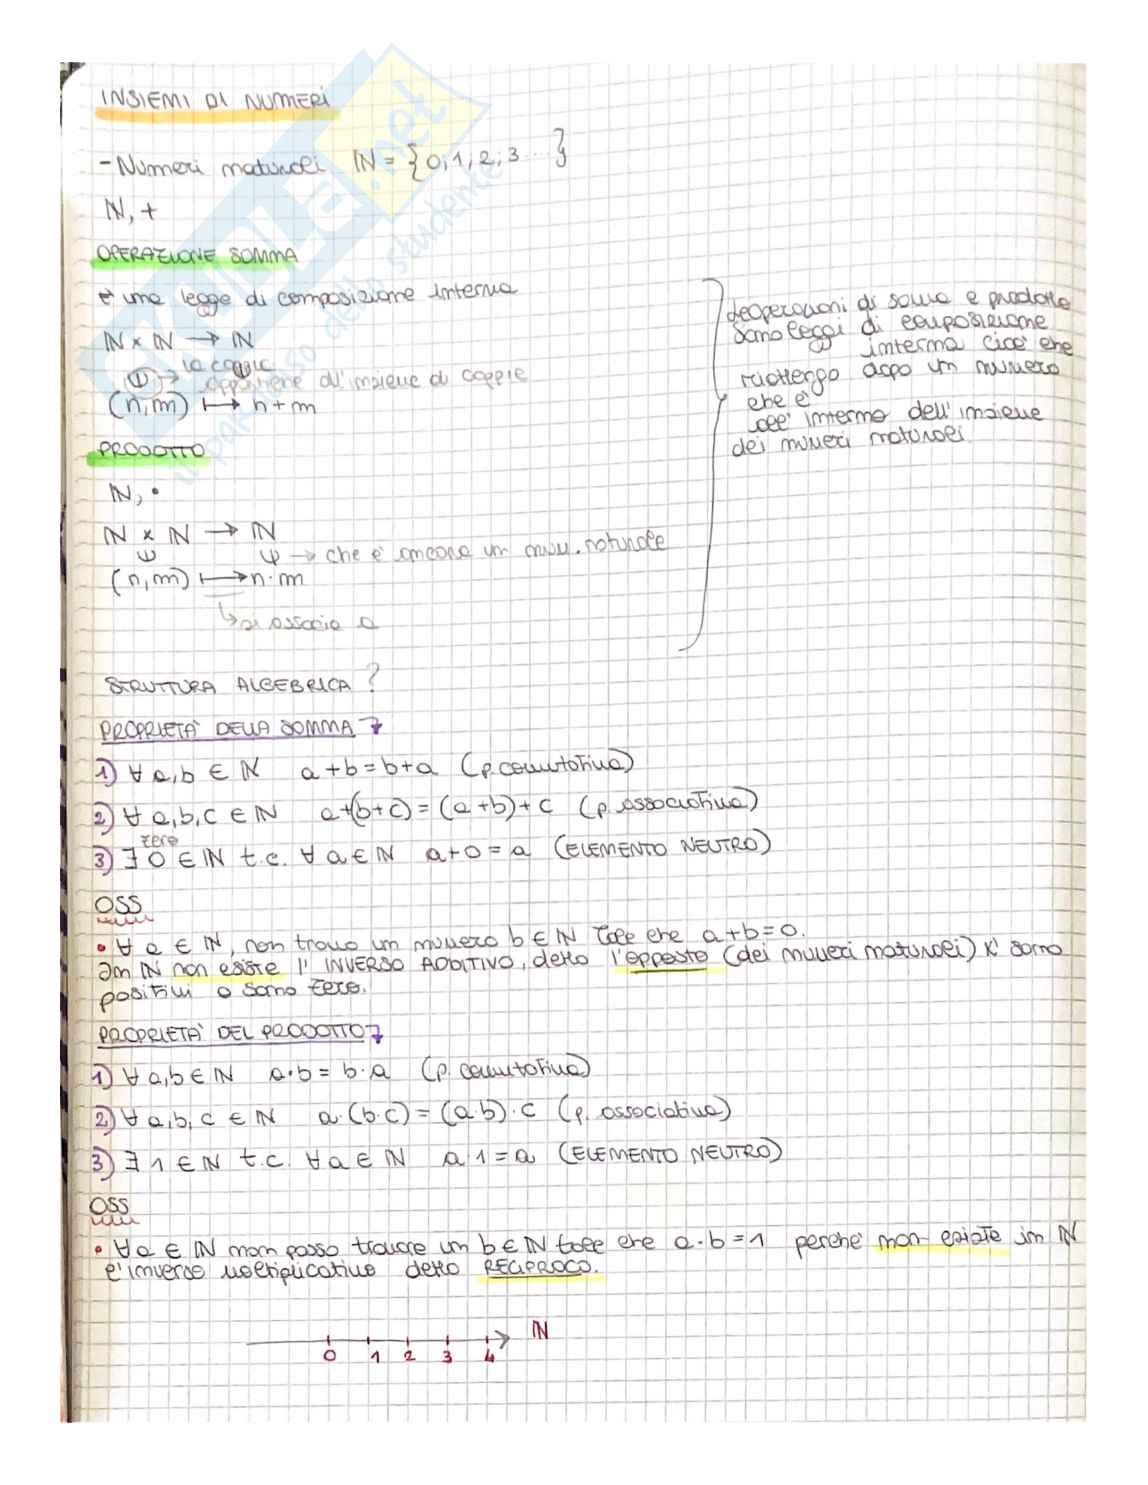 INSIEMI DI NUMERI
- Numeri naturali ℕ = {0, 1, 2, 3 ... }
ℕ, +
OPERAZIONE SOMMA
è una legge di composizione interna
ℕ × ℕ → ℕ
→ la coppia
appartiene all'insieme di coppie
(n,m) ↦ n+m
PRODOTTO
ℕ, •
ℕ × ℕ → ℕ
→ che è ancora un num. naturale
(n,m) ↦ n·m
↳ si associa a
Le operazioni di somma e prodotto
sono leggi di composizione
interna cioè che
riottengo dopo un numero
che è
all'interno dell'insieme
dei numeri naturali
STRUTTURA ALGEBRICA ?
PROPRIETÀ DELLA SOMMA
1) ∀ a,b ∈ ℕ a+b=b+a (p. commutativa)
2) ∀ a,b,c ∈ ℕ a+(b+c)=(a+b)+c (p. associativa)
zero
3) ∃ 0 ∈ ℕ t.c. ∀ a ∈ ℕ a+0=a (ELEMENTO NEUTRO)
OSS
• ∀ a ∈ ℕ, non trovo un numero b ∈ ℕ tale che a+b=0.
In ℕ non esiste l'INVERSO ADDITIVO, detto l'opposto (dei numeri naturali) x' sono
positivi o sono zero.
PROPRIETÀ DEL PRODOTTO
1) ∀ a,b ∈ ℕ a·b = b·a (p. commutativa)
2) ∀ a,b,c ∈ ℕ a·(b·c)=(a·b)·c (p. associativa)
3) ∃ 1 ∈ ℕ t.c. ∀ a ∈ ℕ a·1=a (ELEMENTO NEUTRO)
OSS
• ∀ a ∈ ℕ non posso trovare un b ∈ ℕ tale che a·b=1 perché non esiste in ℕ
l'inverso moltiplicativo detto RECIPROCO.
ℕ
0 1 2 3 4